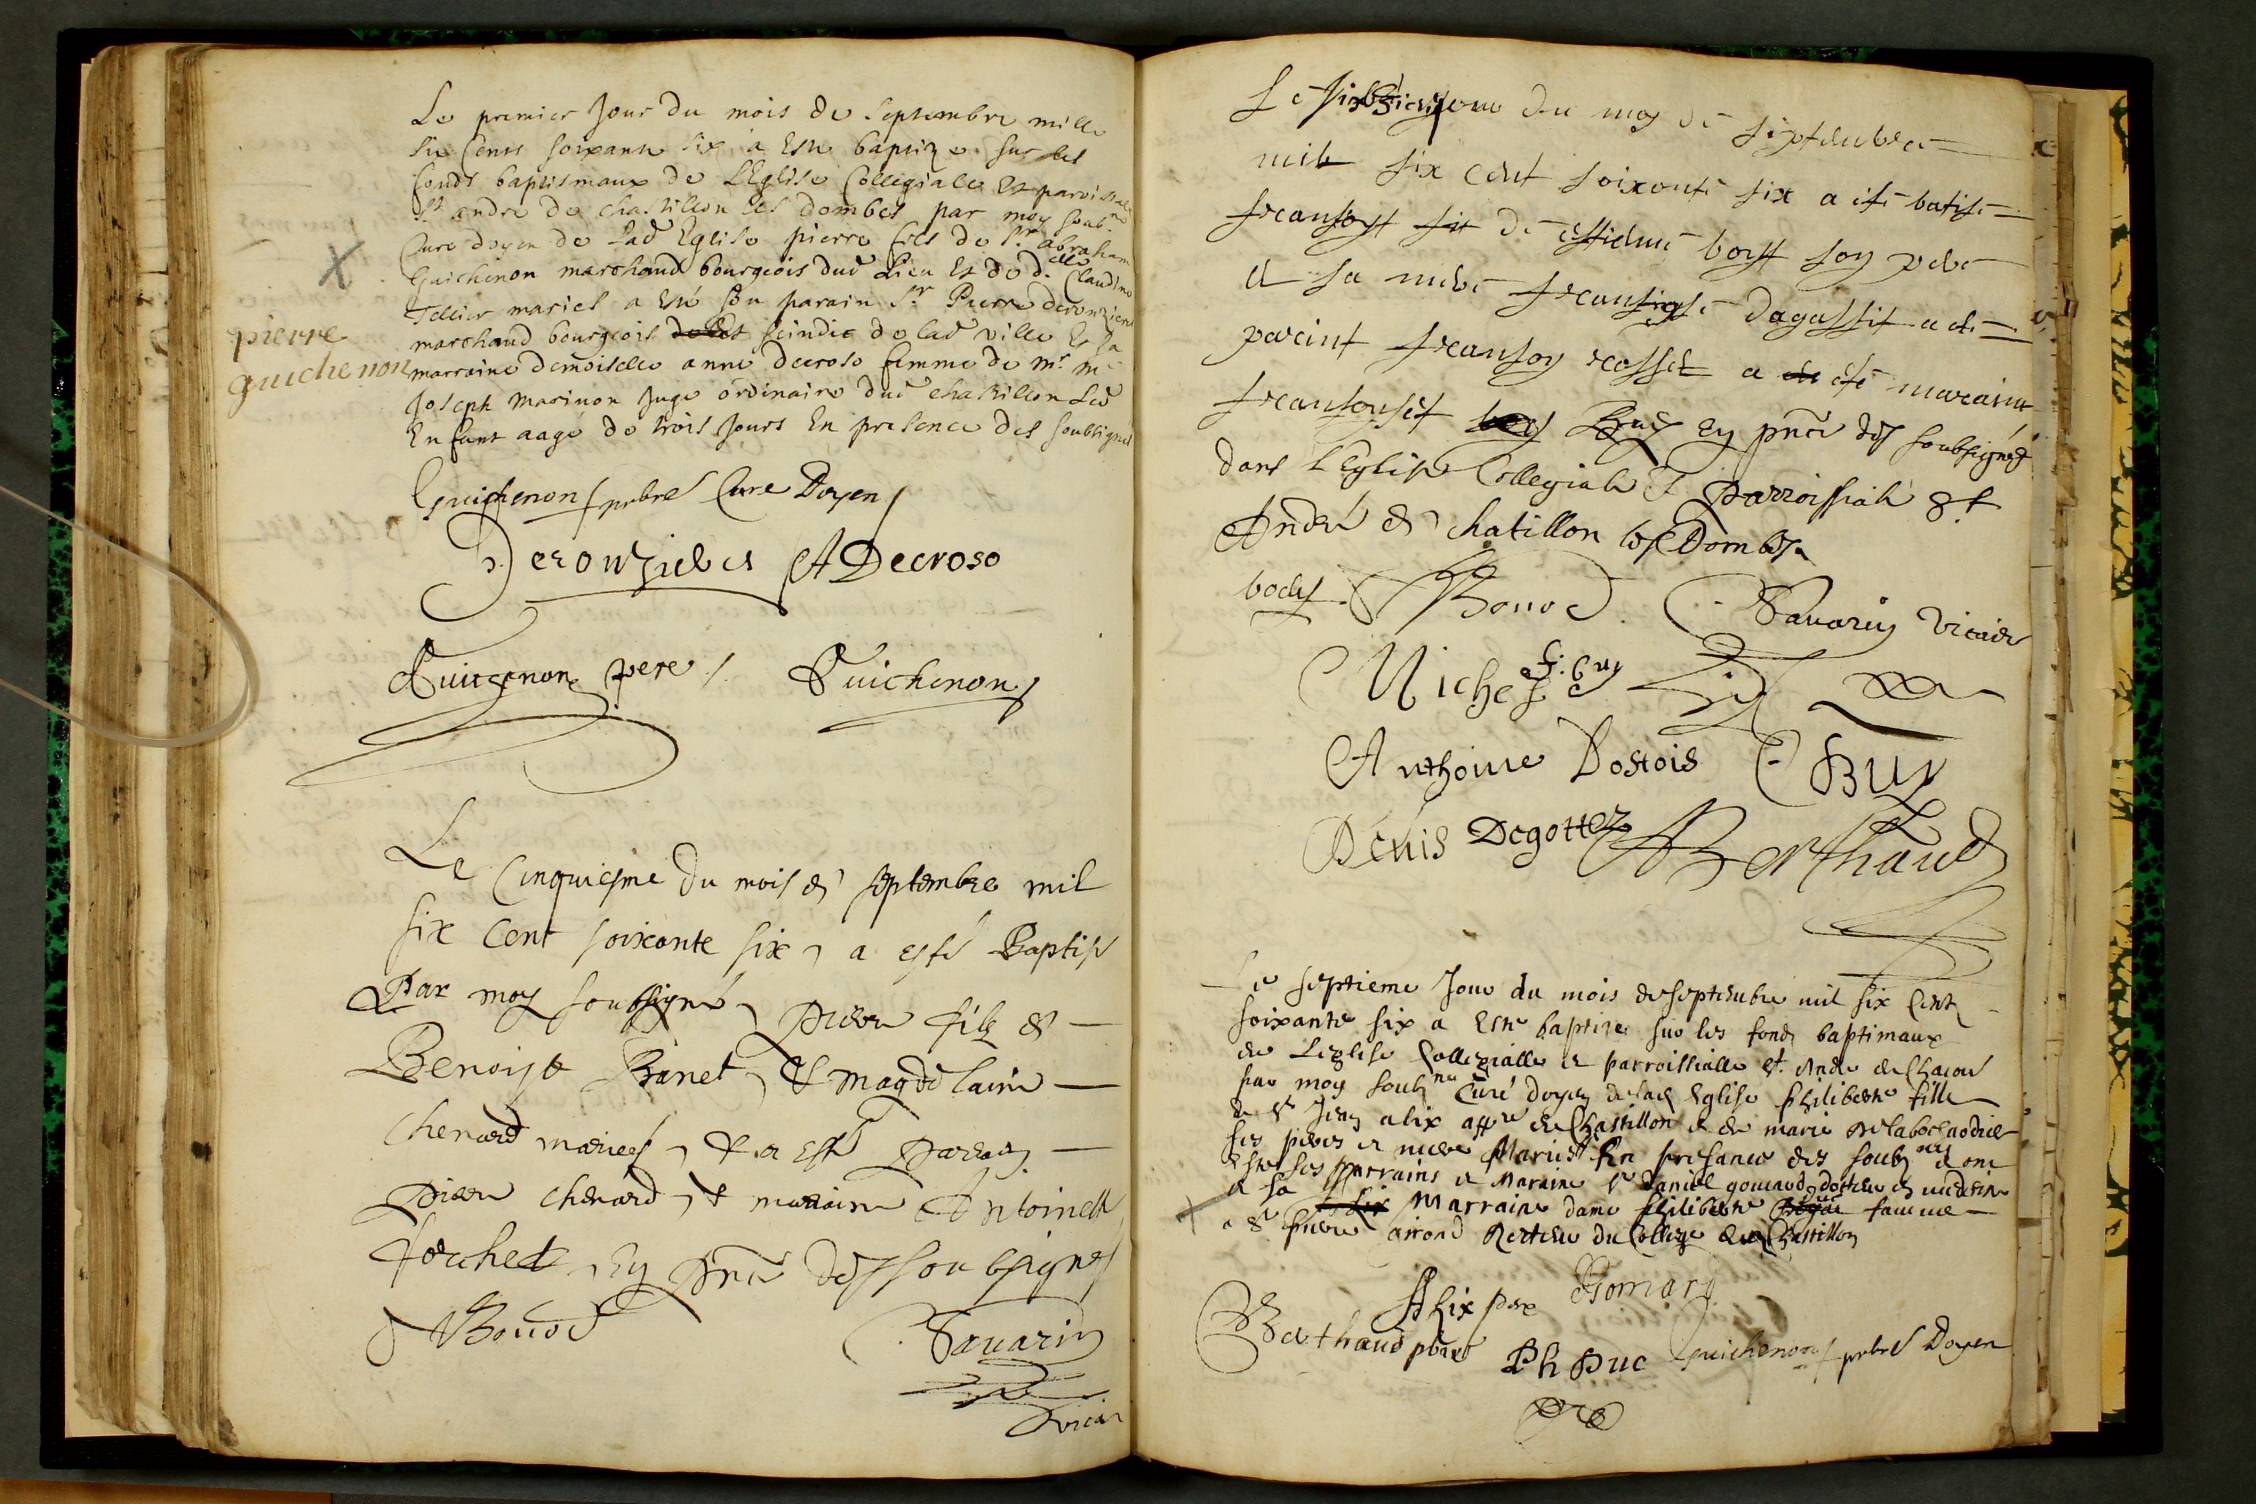 Le premier Jour du mois de Septembre mille
Six Cents soixante six à Esté baptize sur les
fonds baptismaux de LEglise Collegiale Et parroissiale
St andre de chastillon les dombes par moy soubne
Curé doyen de Lad Eglise pierre fils de Sr abraham
Guichenon marchand bourgeois dud Lieu Et de d.elle Claudine
Tellier mariés a Esté son parain Sr Pierre
marchand bourgeois scindic de lad ville Et sa
marraine demoiselle anne decroso femme de mr me
Joseph Marinon Juge ordinaire dud chastillon Led
Enfant aagé de trois Jours En presence des soubsignes
pierre
guichenon
Guichenon pbre Curé Doyen
Deronzieres A Decroso
Guichenon pere Guichenon
Le Cinquiesme du mois de septembre mil
six Cent soixante six a esté Baptisé
Par moy soubsigné pierre filz de
Benoist Banet & magdelaine
Chenard mariés & a esté parrain
pierre chenard & maraine Antoinette
forchet En pnce des soubsignes
Bonod Savarin
vicair
Le jour du moy de septembre
mil six cent soixante six a esté batisé
fransoys de estienne soy pere
et sa mere fransoise a esté
pareint fransoy rosset a esté maraint
fransoise Buy En pnce des soubsignés
dans L'Eglise Collegiale & Parroissiale St
André de chatillon les Dombes
Bonod Savarin vicaire
Michel
Anthoine Dostois Buy
Denis Degottez Berthaud
Le septieme Jour du mois de septembre mil six Cent
soixante six a Esté baptizé sur les fonds baptimaux
de Leglise Collegialle et parroissialle St. André de
par moy soubne Curé doyen de lad Eglise philiberte fille
de Sr Jean alix de Chastillon et de marie
ses peres et mere Mariés En presance des soub
Esté ses parrains et Maraine Sr daniel docteur en medecine
et sa Marraine dame philiberte famme
a Sr pierre airond Recteur du College de Chastillon
Alix pere Gomard
Berthaud pbre Ph Duc Guichenon pbre Doyen